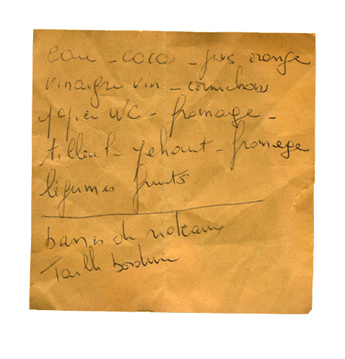 eau - coca - jus orange
vinaigre vin - cornichons
papier WC - fromage -
tilleul - yahourt - fromage
légumes fruits
barres de rideaux
Taille bordure